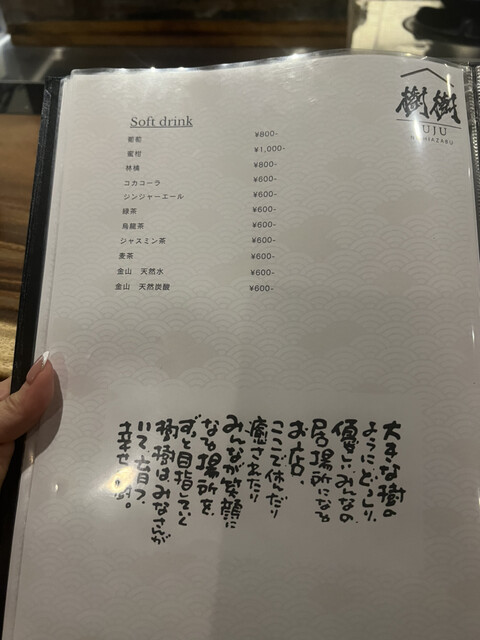 Soft drink
葡萄 ¥800-
蜜柑 ¥1,000-
林檎 ¥800-
コカコーラ ¥600-
ジンジャーエール ¥600-
緑茶 ¥600-
烏龍茶 ¥600-
ジャスミン茶 ¥600-
麦茶 ¥600-
金山 天然水 ¥600-
金山 天然炭酸 ¥600-
樹樹
JUJU
NISHIAZABU
大きな樹の
ようにどっしり、
優しい、みんなの
居場所になる
お店、
ここで休んだり
癒されたり
みんなが笑顔に
なる場所を
ずっと目指していく
樹樹はみなさんが
いて、育つ、
幸せの樹。